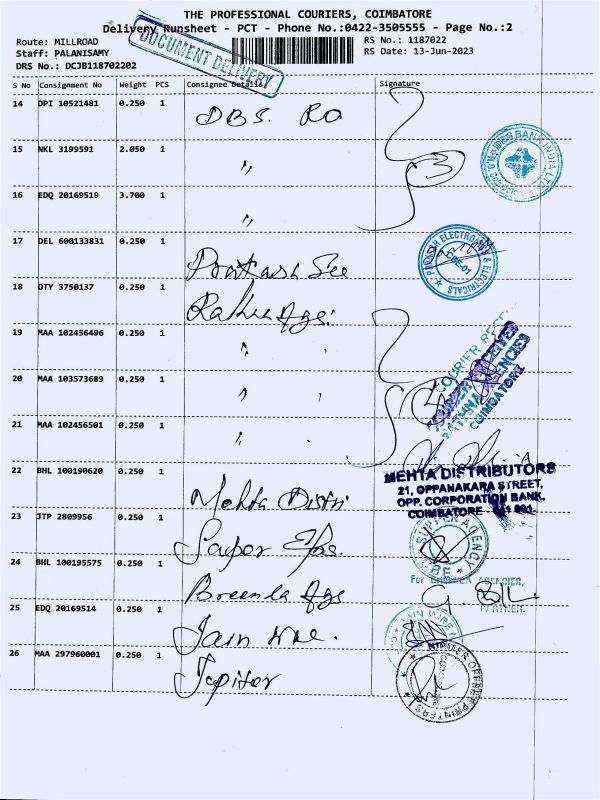 THE PROFESSIONAL COURIERS, COIMBATORE
Delivery Runsheet - PCT - Phone No.:0422-3505555 - Page No.:2
Route: MILLROAD
Staff: PALANISAMY
DRS No.: DCJB118702202
RS No.: 1187022
RS Date: 13-Jun-2023
DOCUMENT DELIVERY
S No Consignment No Weight PCS Consignee Details Signature
14 DPI 10521481 0.250 1 DBS. RO
15 NKL 3199591 2.050 1 "
3
BANK INDIA LTD
16 EDQ 20169519 3.700 1 "
17 DEL 600133831 0.250 1 Prakash See
PRAKASH ELECTRONICS & ELECTRICALS
CBE-01
18 DTY 3750137 0.250 1 Rahu Ags.
19 MAA 102456496 0.250 1 "
20 MAA 103573689 0.250 1 "
COURIER
AGENCIES
COIMBATORE
21 MAA 102456501 0.250 1 "
22 BHL 100190620 0.250 1 Mehta Distri
MEHTA DISTRIBUTORS
21, OPPANAKARA STREET,
OPP. CORPORATION BANK,
COIMBATORE
23 JTP 2809956 0.250 1
AGENCY
CBE
24 BHL 100195575 0.250 1 Breenla Ags
For AGENCIES,
PARTNER.
25 EDQ 20169514 0.250 1 Jain
JAIN WIRE
26 MAA 297960001 0.250 1 Jupiter
JUPITER OFFSET PRINTERS